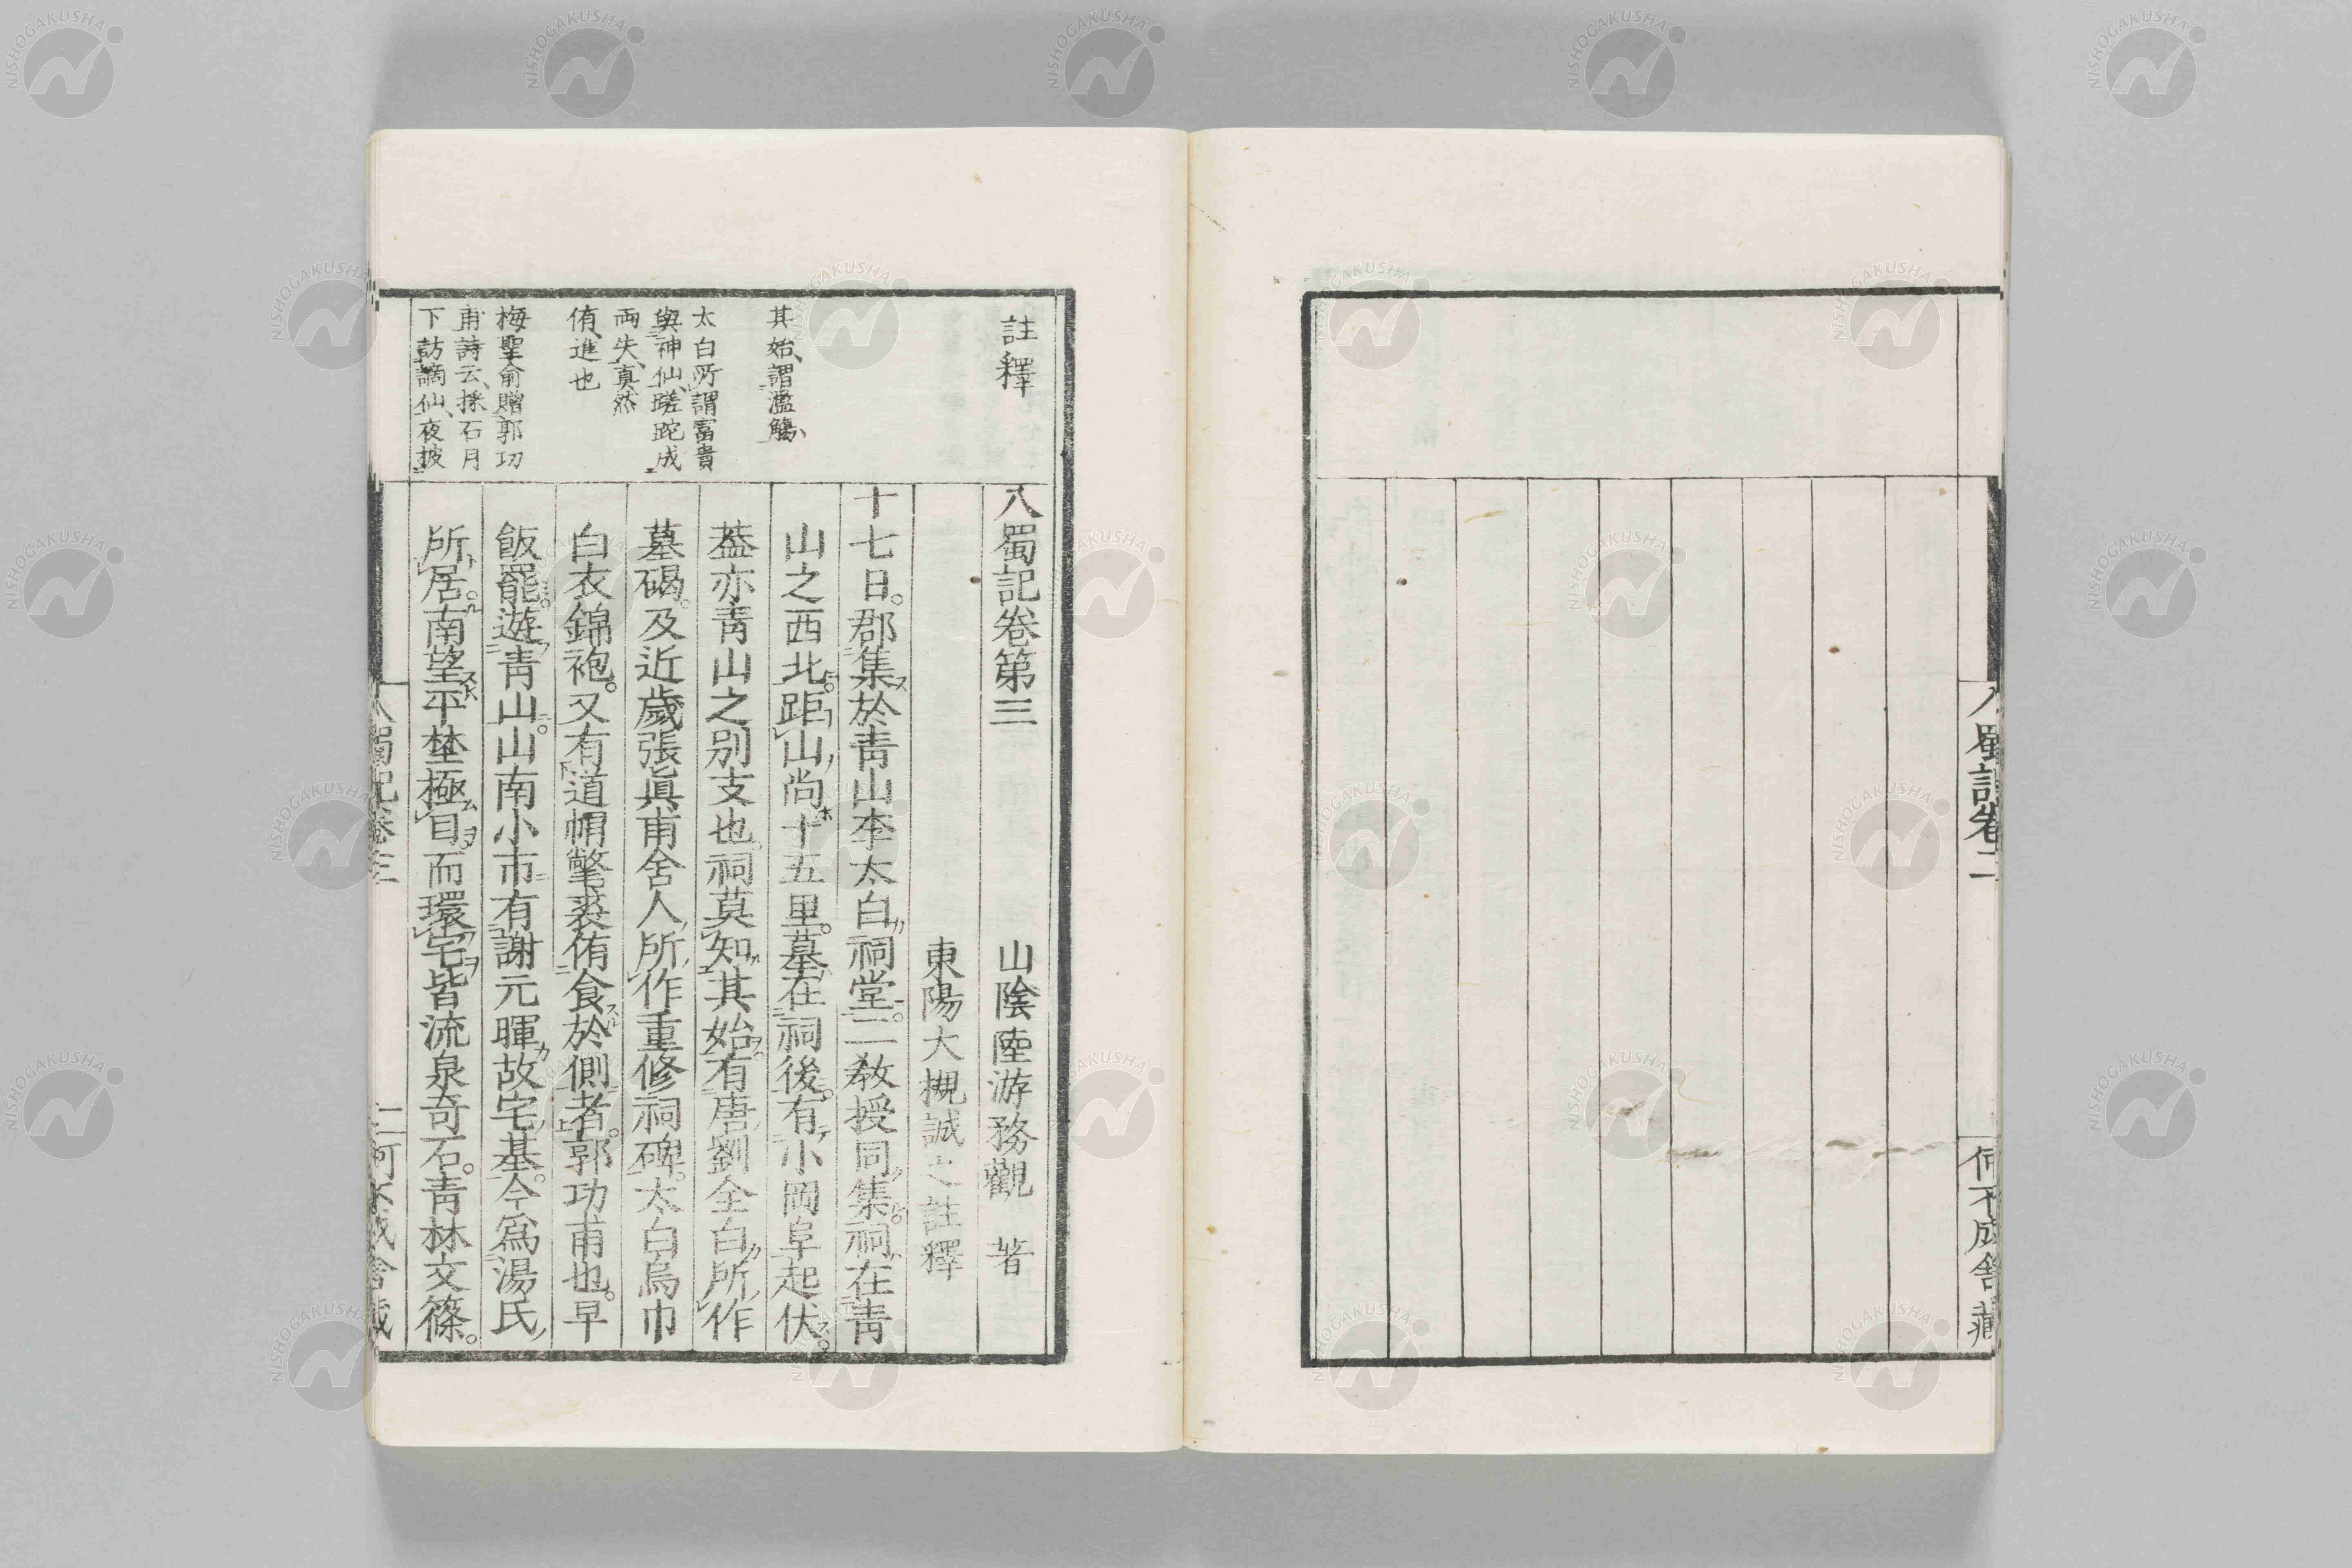 入蜀記卷二
何不成舍藏
註釋
其始、謂濫觴、
太白所謂富貴
與神仙、蹉跎成
兩失、真然
侑、進也
梅聖俞贈郭功
甫詩云、採石月
下訪謫仙、夜披
入蜀記卷第三
山陰陸游務觀 著
東陽大槻誠之註釋
十七日。郡集於青山李太白祠堂。二敎授同集。祠在青
山之西北。距山尚十五里。墓在祠後。有小岡阜起伏。
葢亦青山之別支也。祠莫知其始。有唐劉全白所作
墓碣。及近歲張眞甫舍人所作重修祠碑。太白烏巾
白衣錦袍。又有道帽氅裘侑食於側者。郭功甫也。早
飯罷。遊青山。山南小市有謝元暉故宅基。今爲湯氏
所居。南望平埜極目。而環宅皆流泉奇石。青林文篠。
入蜀記卷三
一
何不成舍藏
NISHOGAKUSHA